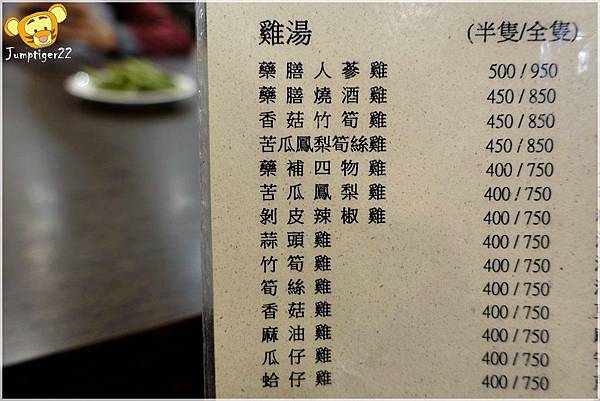 Jumptiger22
雞湯 (半隻/全隻)
藥膳人蔘雞 500 / 950
藥膳燒酒雞 450 / 850
香菇竹筍雞 450 / 850
苦瓜鳳梨筍絲雞 450 / 850
藥補四物雞 400 / 750
苦瓜鳳梨雞 400 / 750
剝皮辣椒雞 400 / 750
蒜頭雞 400 / 750
竹筍雞 400 / 750
筍絲雞 400 / 750
香菇雞 400 / 750
麻油雞 400 / 750
瓜仔雞 400 / 750
蛤仔雞 400 / 750